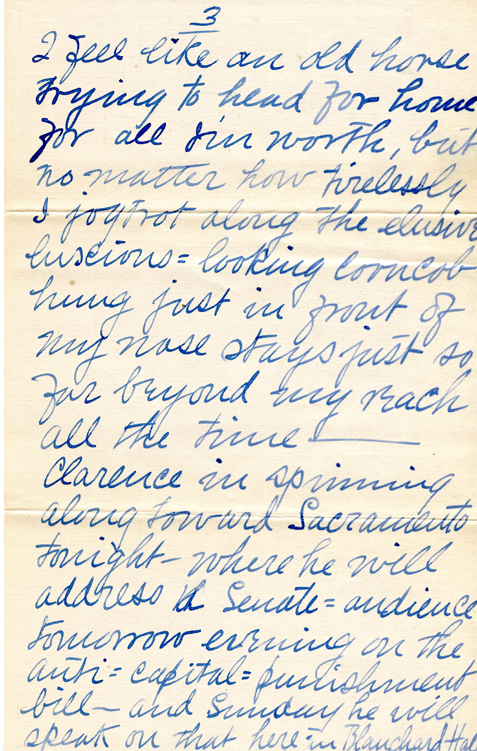 3
I feel like an old horse
trying to head for home
for all I'm worth, but
no matter how tirelessly
I jogtrot along the elusive
luscious=looking corncob
hung just in front of
my nose stays just so
far beyond my reach
all the time —
Clarence is spinning
along toward Sacramento
tonight — where he will
address the Senate=audience
tomorrow evening on the
anti=capital=punishment
bill — and Sunday he will
speak on that here=in Blanchard Hal